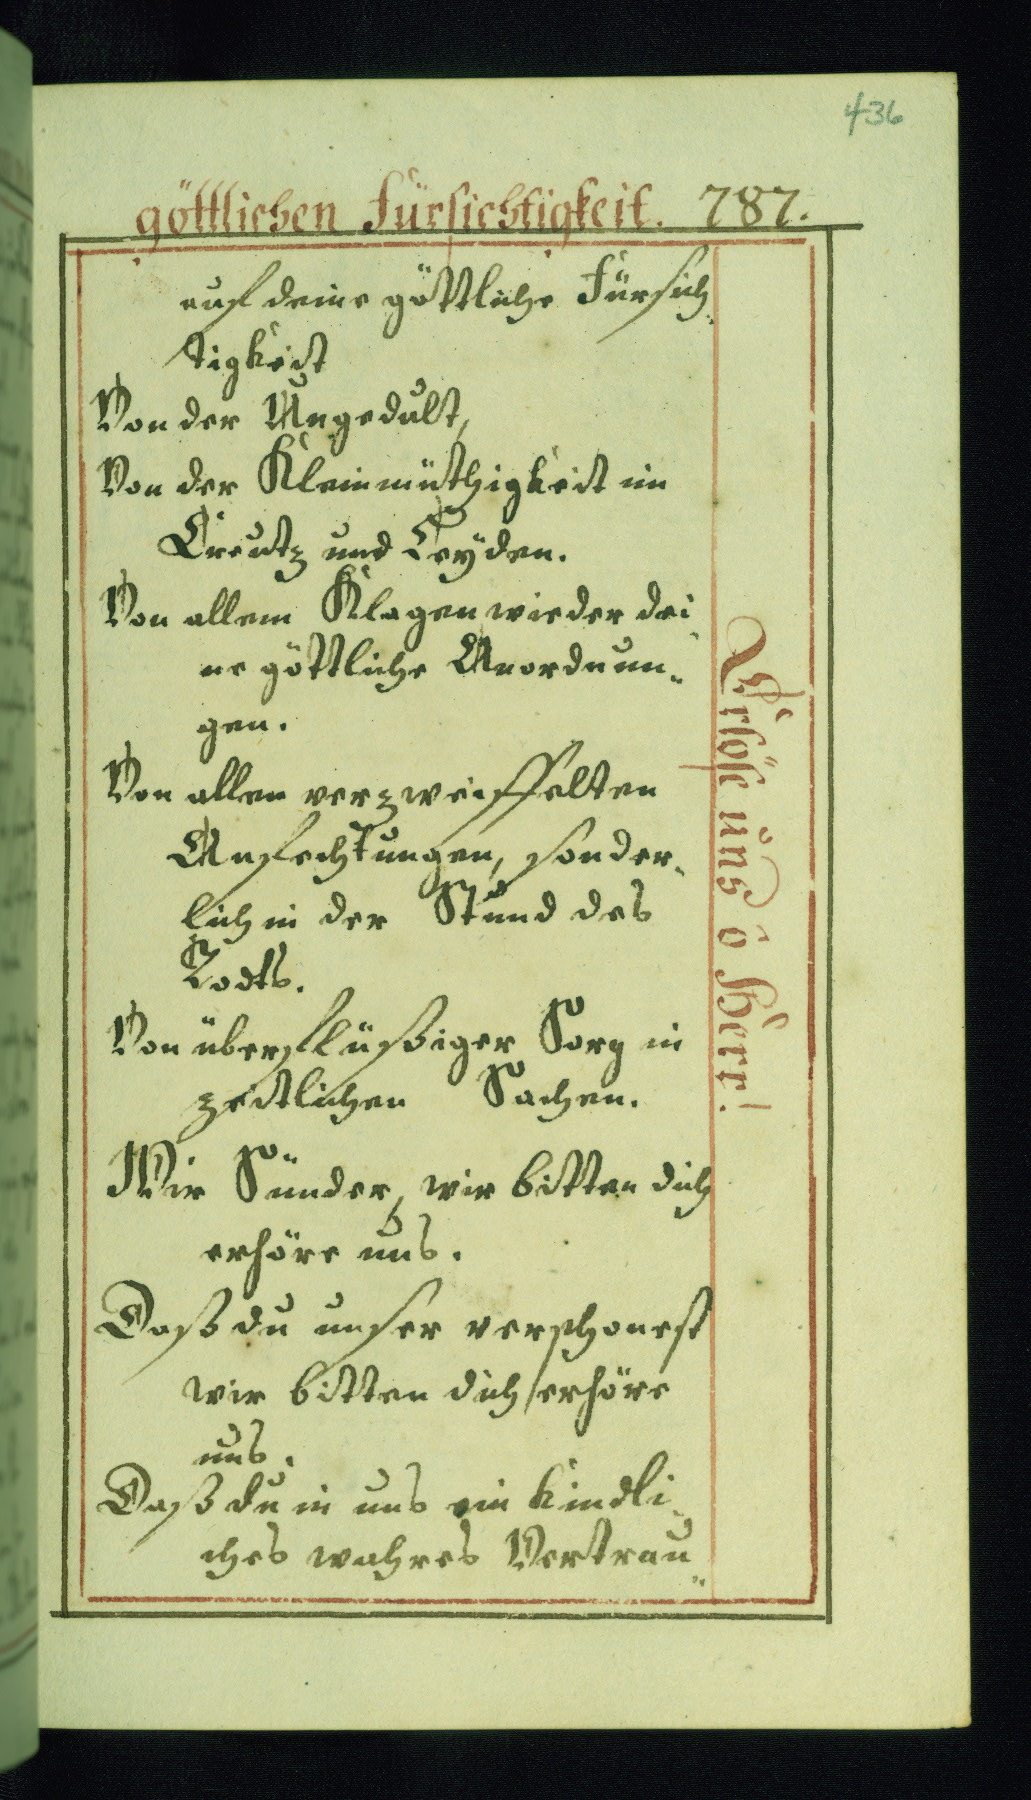 436
göttlichen Fürsichtigkeit. 787.
auf deine göttliche Fürsich-
tigkeit
Von der Ungedult,
Von der Kleinmüthigkeit in
Creutz und Leyden.
Von allem Klagen wieder dei-
ne göttliche Anordnun-
gen.
Von allen verzweiffelten
Anfechtungen, sonder-
lich in der Stund des
Todts.
Von überflüßiger Sorg in
zeitlichen Sachen.
Wir Sünder, wir bitten dich
erhöre uns.
Daß du unser verschonest
wir bitten dich erhöre
uns.
Daß du in uns ein kindli-
ches wahres Vertrau-
Erlöse uns ô Herr!